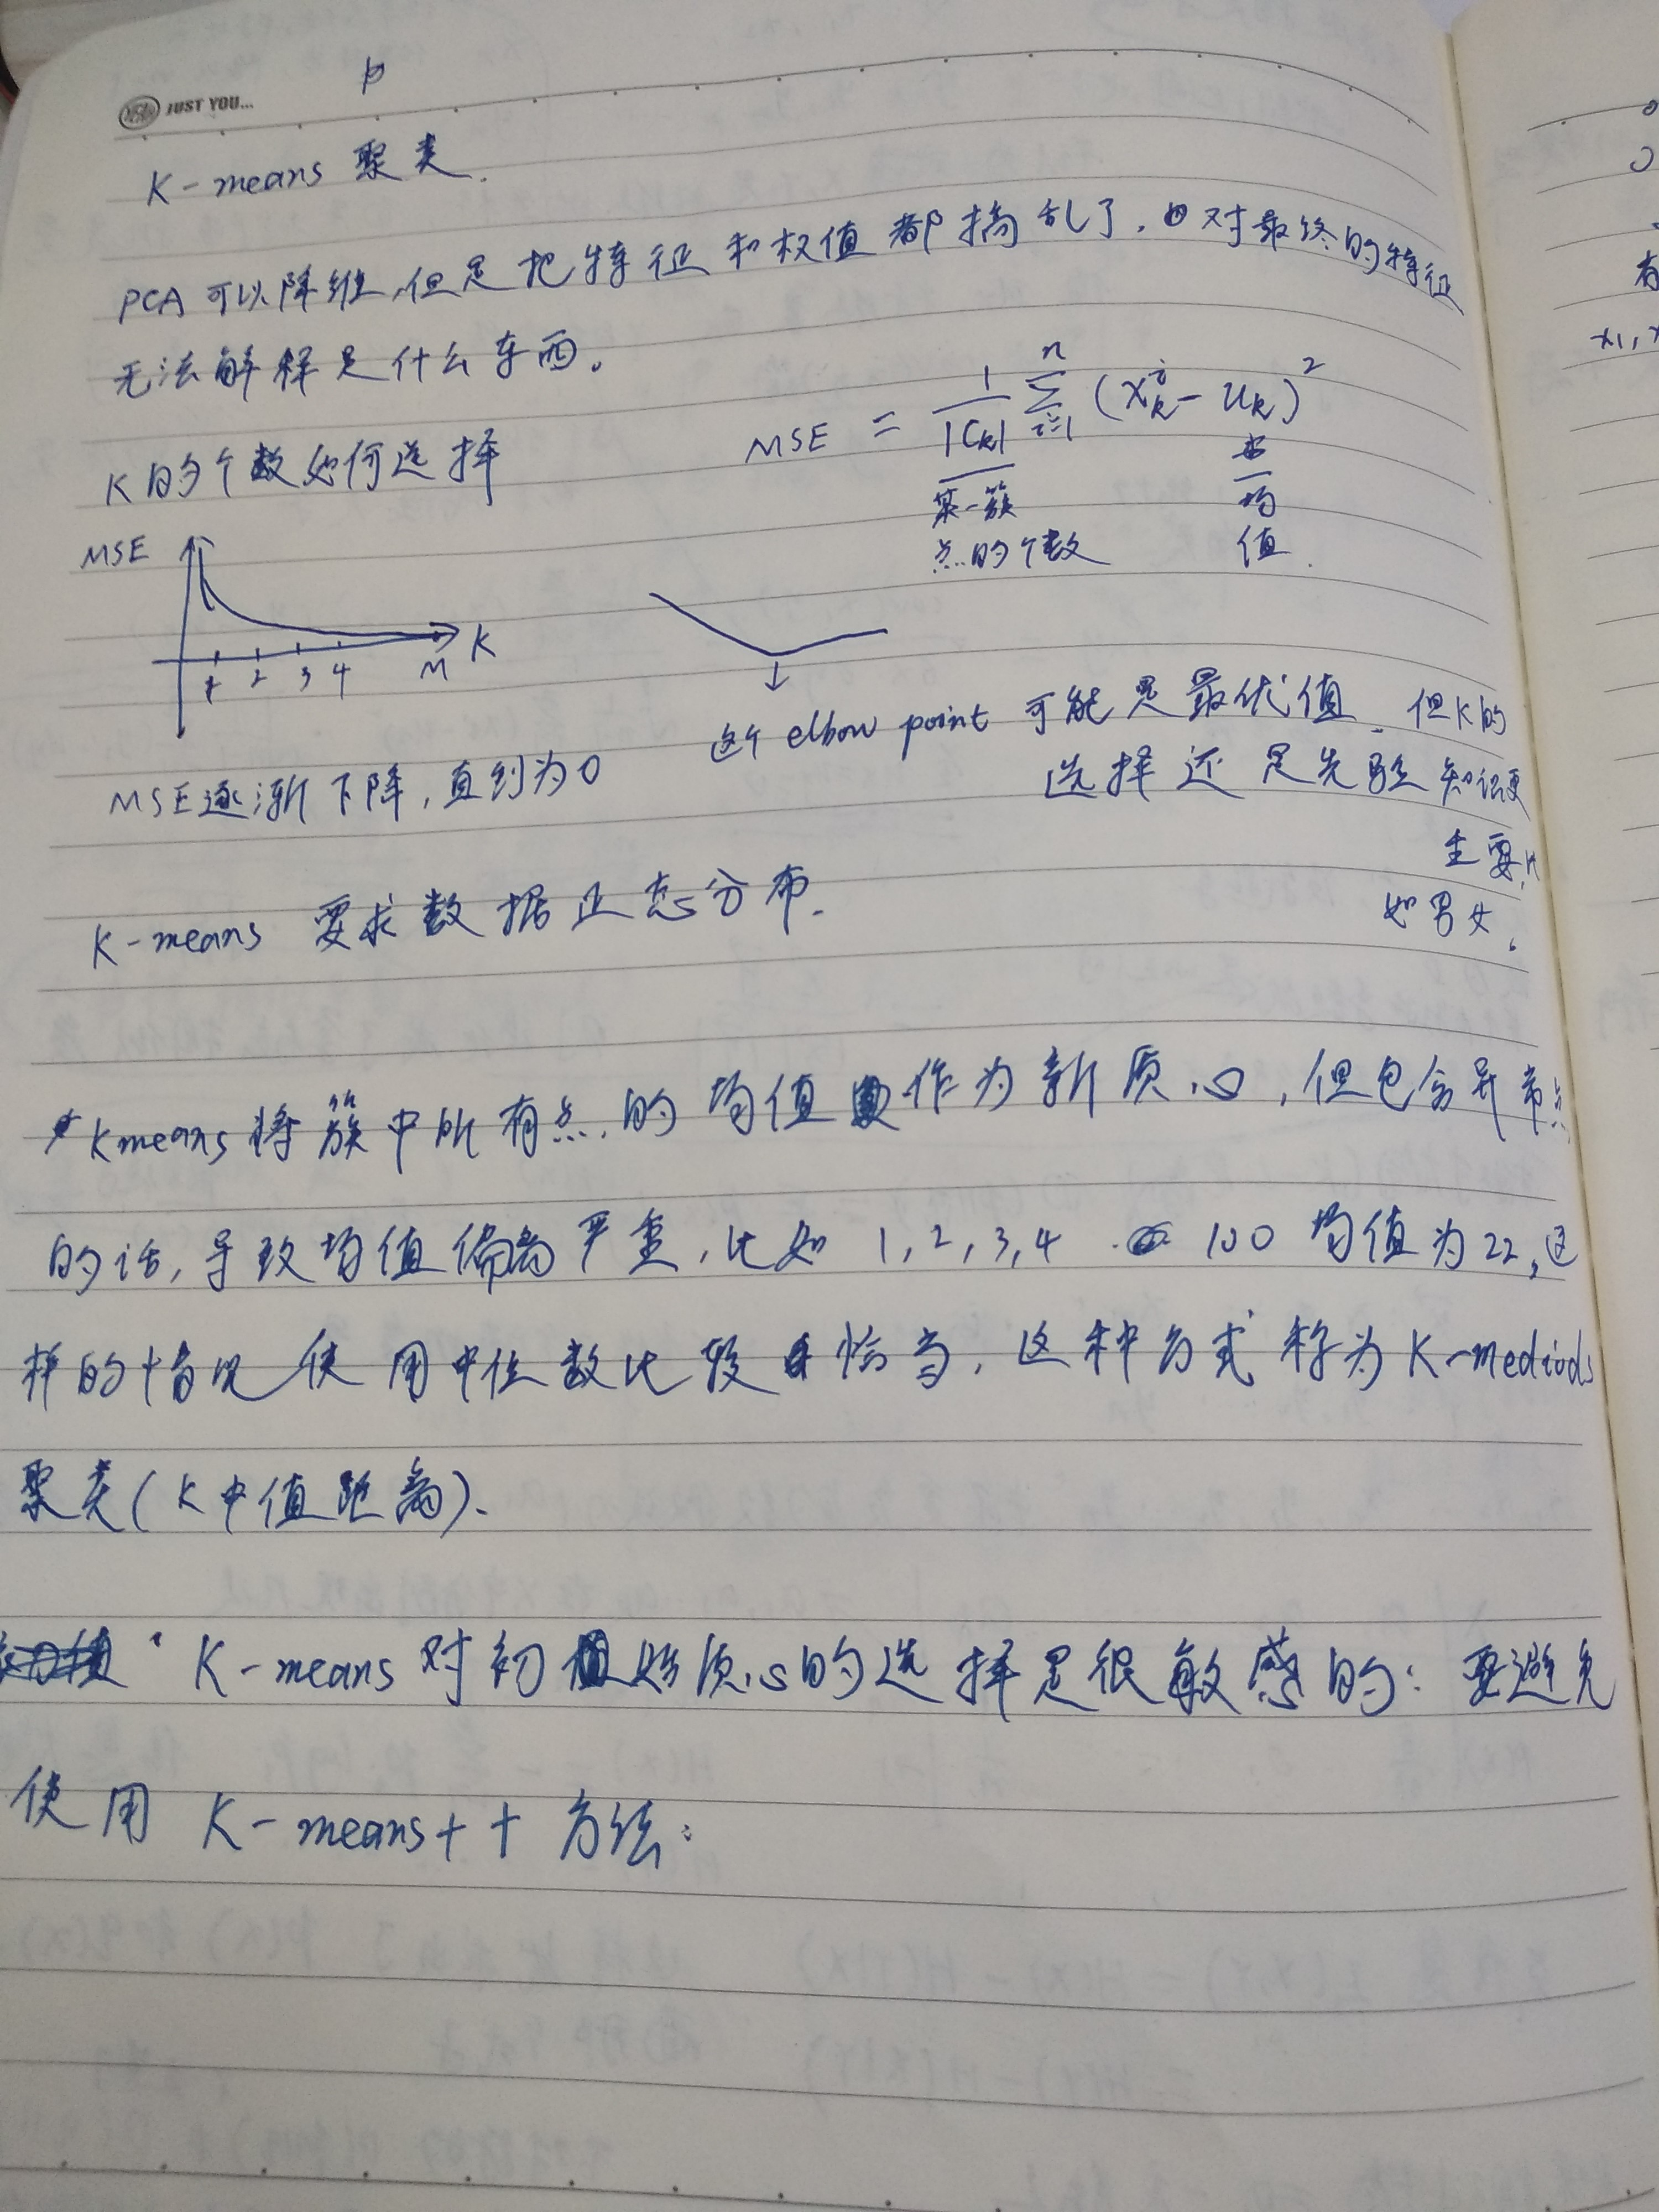 JUST YOU...
K-means 聚类.
PCA可以降维,但是把特征和权值都搞乱了,对最终的特征
无法解释是什么东西。
K的个数如何选择
MSE = 1/|Ck| n∑i=1 (xki - uk)²
某一簇
点的个数
均
值
MSE
K
1 2 3 4 M
这个 elbow point 可能是最优值. 但K的
选择还是先验知识更
主要,
如男女。
MSE逐渐下降,直到为0
K-means 要求数据正态分布.
Kmeans将簇中所有点的均值作为新质心,但包含异常点
的话,导致均值偏离严重,比如 1,2,3,4 100 均值为22,这
样的情况使用中位数比较恰当,这种方式称为K-mediods
聚类(K中值距离).
K-means对初始质心的选择是很敏感的:要避免
使用 K-means++方法: